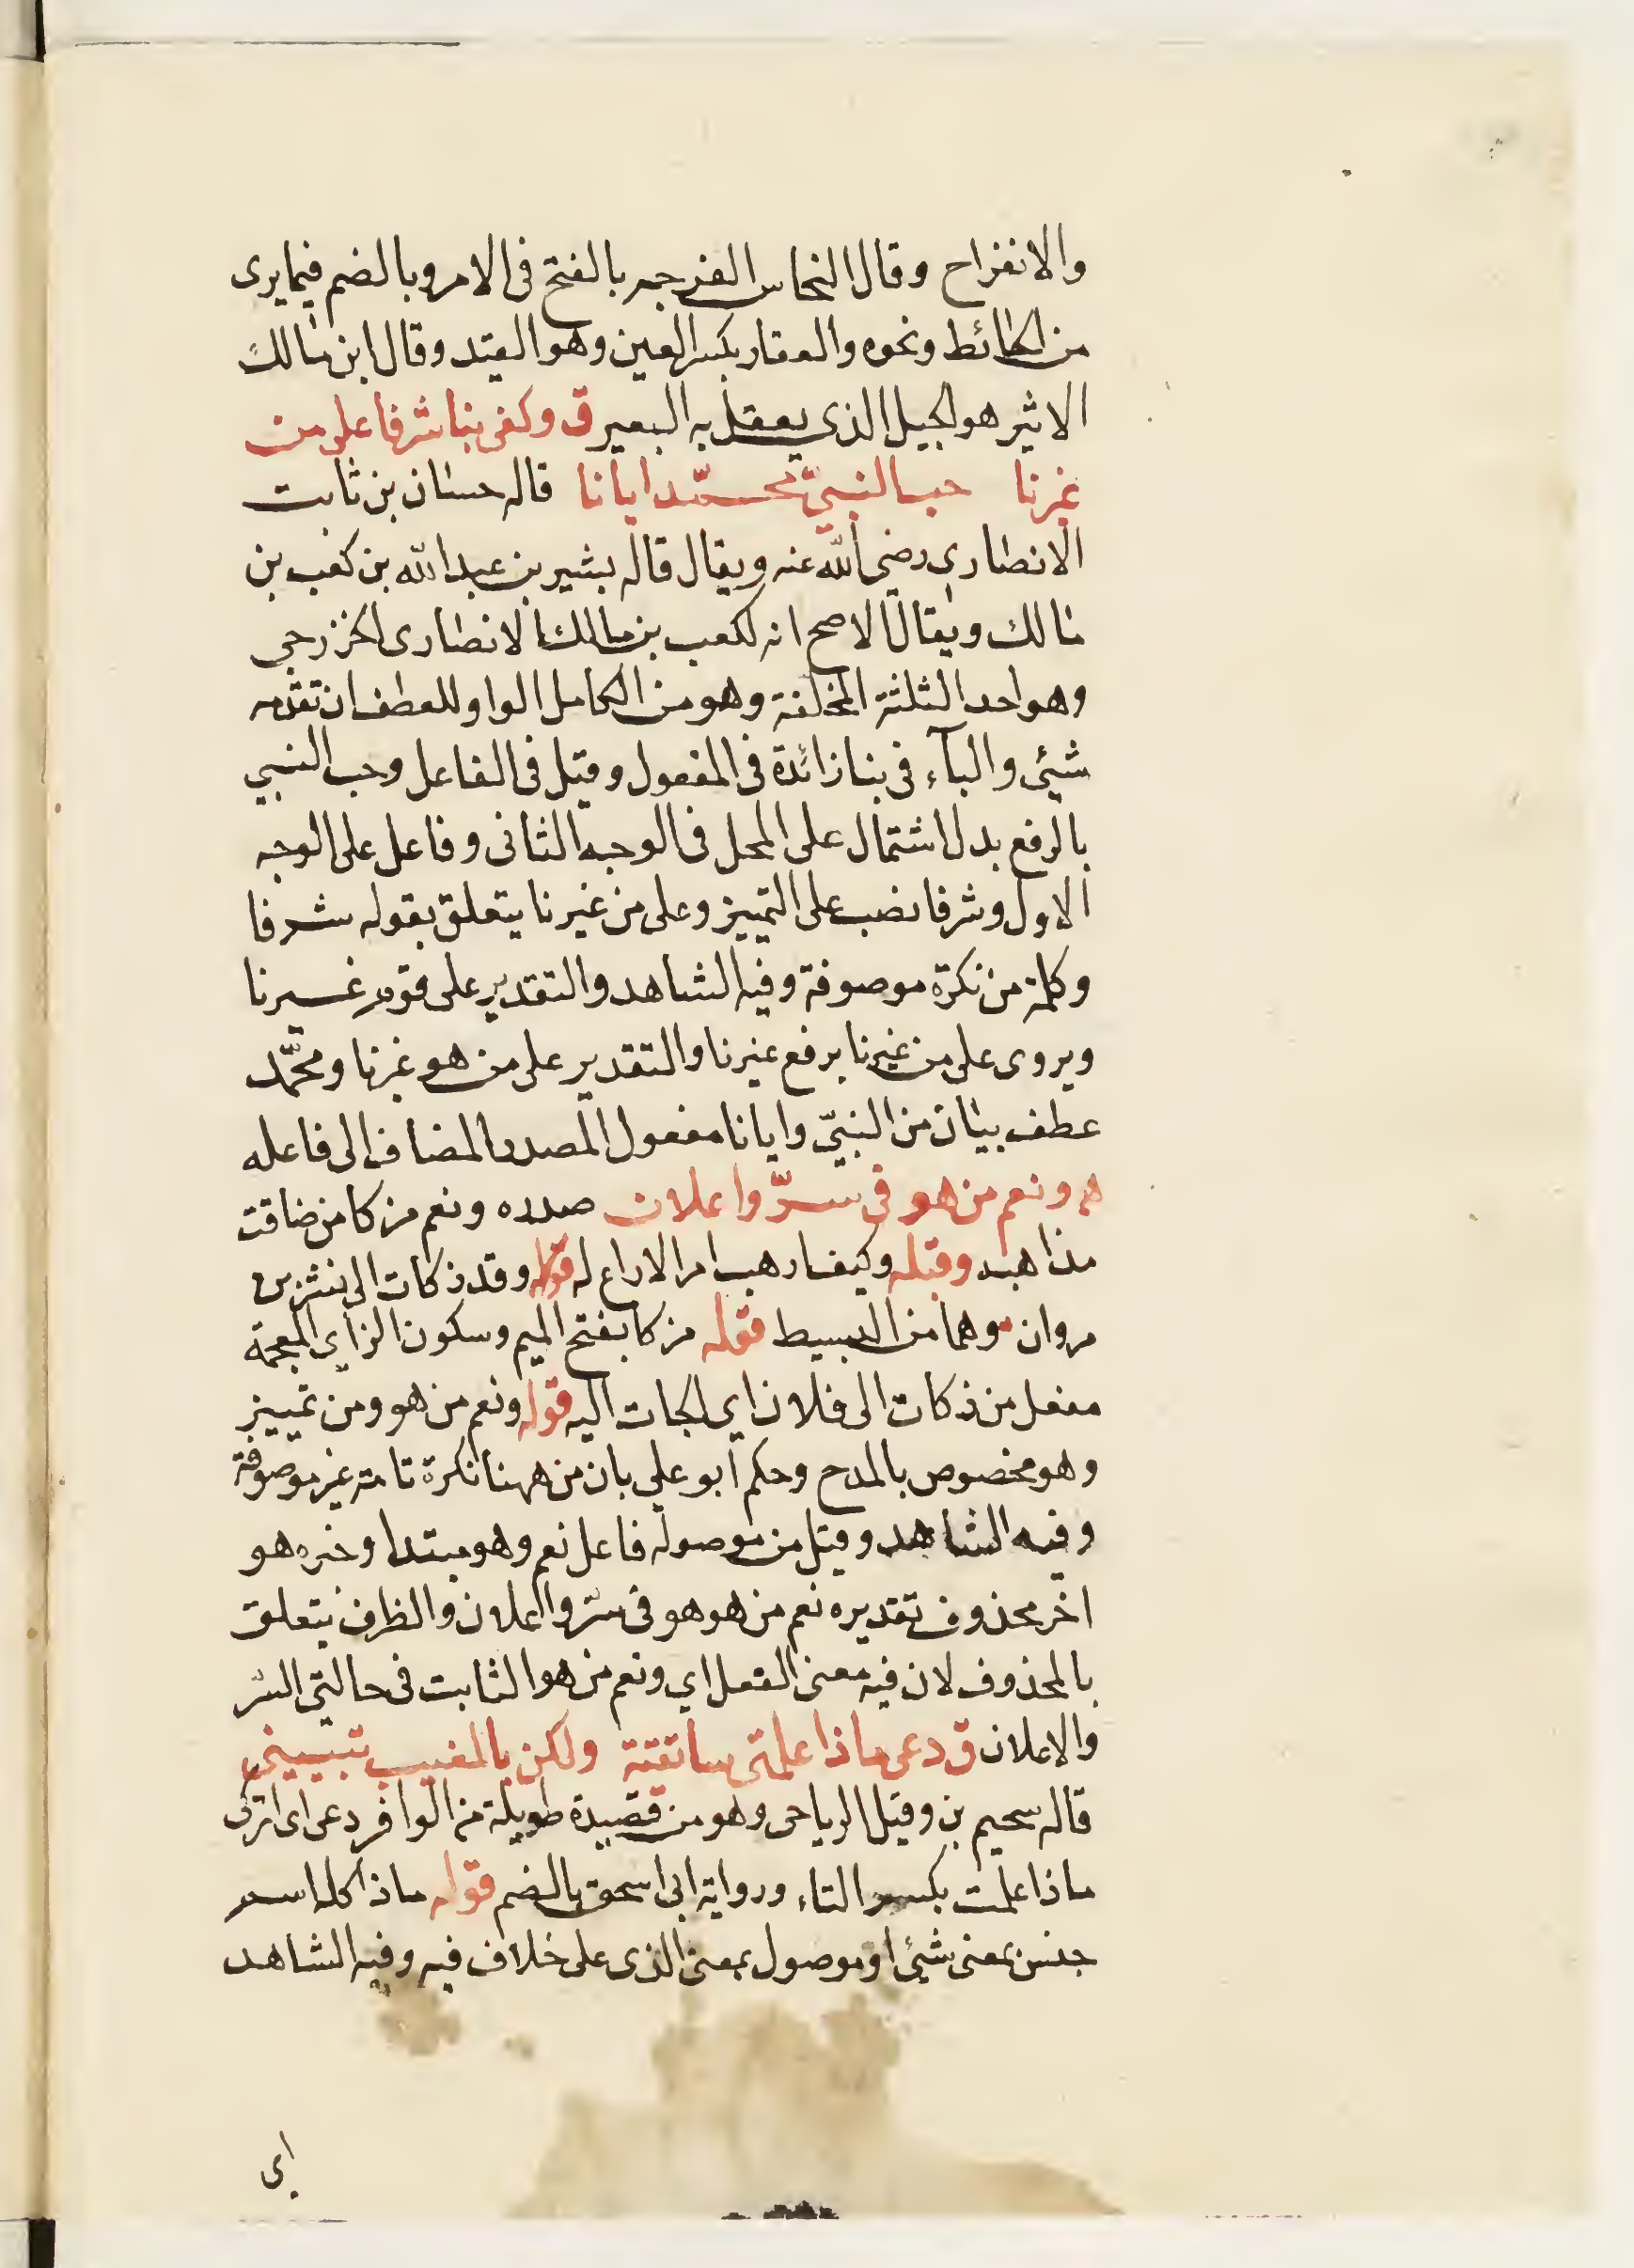 والانفراح وقال النحاس الفرجه بالفتح فى الامر وبالضم فيما يرى
من الحائط ونحوه والعقار بكسر العين وهو القيد وقال ابن مالك
الاثير هو الحبل الذي يعقل به البعير ق وكفى بنا شرفا على من
غيرنا حب النبيّ محمّد ايانا قاله حسان بن ثابت
الانصارى رضي الله عنه ويقال قاله بشير بن عبد الله بن كعب بن
مالك ويقال الاصح انه لكعب بن مالك الانصارى الخزرجى
وهو احد الثلثة المخلفة وهو من الكامل الواو للعطف ان تقدمه
شيئ والبآء فى بنا زائدة فى المفعول وقيل فى الفاعل وحب النبي
بالرفع بدل اشتمال على المحل فى الوجه الثانى وفاعل على الوجه
الاول وشرفا نصب على التمييز وعلى من غيرنا يتعلق بقوله شرفا
وكلمة من نكرة موصوفة وفيه الشاهد والتقدير على قوم غيرنا
ويروى على من غيرنا برفع غيرنا والتقدير على من هو غيرنا ومحمّد
عطف بيان من النبيّ وايانا مفعول المصدر المضاف الى فاعله
ه ونعم من هو فى سرّ واعلان صدره ونعم مزكا من ضاقت
مذاهبه وقبله وكيف ارهب امرا لا اراع له قوله وقد زكات الى بشر بن
مروان وهما من البسيط قوله مزكا بفتح الميم وسكون الزاي المعجمة
مفعل من زكات الى فلان اي لجات اليه قوله ونعم من هو ومن تمييز
وهو مخصوص بالمدح وحكم ابو علي بان من ههنا نكرة تامة غير موصوفة
وفيه الشاهد وقيل من موصولة فاعل نعم وهو مبتدا وخبره هو
اخر محذوف تقديره نعم من هو هو فى سرّ واعلان والظرف يتعلق
بالمحذوف لان فيه معنى الفعل اي ونعم من هو الثابت فى حالتى السرّ
والاعلان ق دعى ماذا علمتى ساتقية ولكن بالمغيب تبييني
قاله سحيم بن وقيل الرياحى وهو من قصيدة طويلة من الوافر دعى اى اتركى
ماذا علمت بكسر التاء ورواية ابى اسحق بالضم قوله ماذا كله اسم
جنس بمعنى شيئ او موصول بمعنى الذى على خلاف فيه وفيه الشاهد
اى